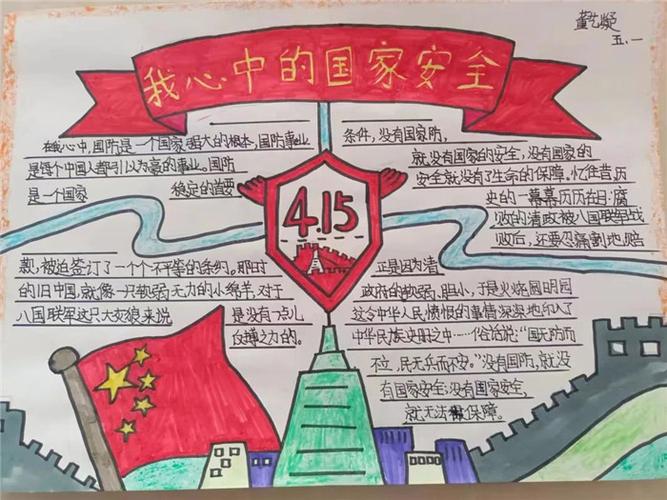 董艺凝
五.一
我心中的国家安全
在我心中,国防是一个国家强大的根本,国防事业
是每个中国人都引以为豪的事业。国防
是一个国家 稳定的首要
条件,没有国家防,
就没有国家的安全,没有国家的
安全就没有了生命的保障。忆往昔,历
史的一幕幕历历在目:腐
败的清政被八国联军战
败后,还要忍痛割地、赔
4.15
款,被迫签订了一个个不平等的条约。那时
的旧中国,就像一只软弱无力的小绵羊,对于
八国联军这只大灰狼来说
是没有一点儿
反搏之力的。
正是因为清
政府的软弱、胆小,于是火烧圆明园
这令中华人民愤恨的事情深深地印入了
中华民族史册之中…俗话说:“国无防而
不立,民无兵而不安。”没有国防,就没
有国家安全;没有国家安全,
就无法保障。